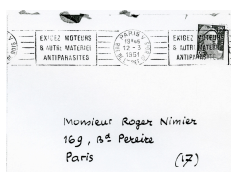 EXIGEZ MOTEURS
& AUTRE MATERIEL
ANTIPARASITES
PARIS
12 - 3
1951
EXIGEZ MOTEURS
& AUTRE MATERIEL
ANTIPARASITES
Monsieur Roger Nimier
169, Bd Pereire
Paris (17)